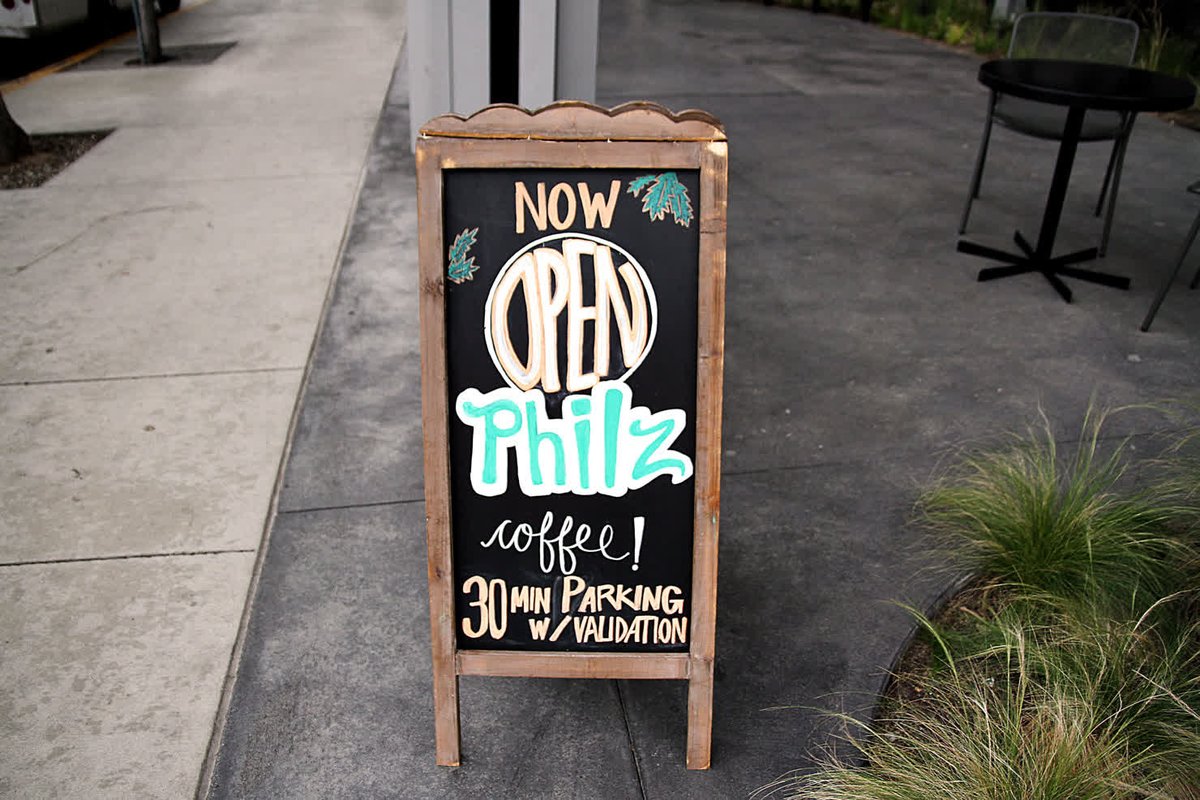 NOW
OPEN
Philz
coffee!
30 MIN PARKING
W/VALIDATION